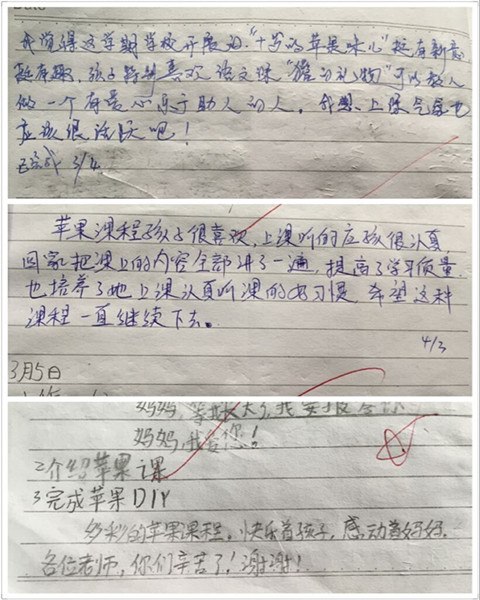 我觉得这学期学校开展的“十岁的苹果味儿”挺有新意
挺有趣，孩子特别喜欢语文课“[?]的礼物”可以教人
做一个有爱心乐于助人的人，我想，上课气氛也
应该很活跃吧！
已完成 3/4
苹果课程孩子很喜欢，上课听的应该很认真，
回家把课上的内容全部讲了一遍，提高了学习质量
也培养了她上课认真听课的好习惯，希望这种
课程一直继续下去。
4/3
3月5日
妈妈，等我长大了，我要报答你
妈妈，我爱您！
2介绍苹果课
3完成苹果DIY
多彩的苹果课程。快乐着孩子，感动着妈妈。
各位老师，你们辛苦了！谢谢！